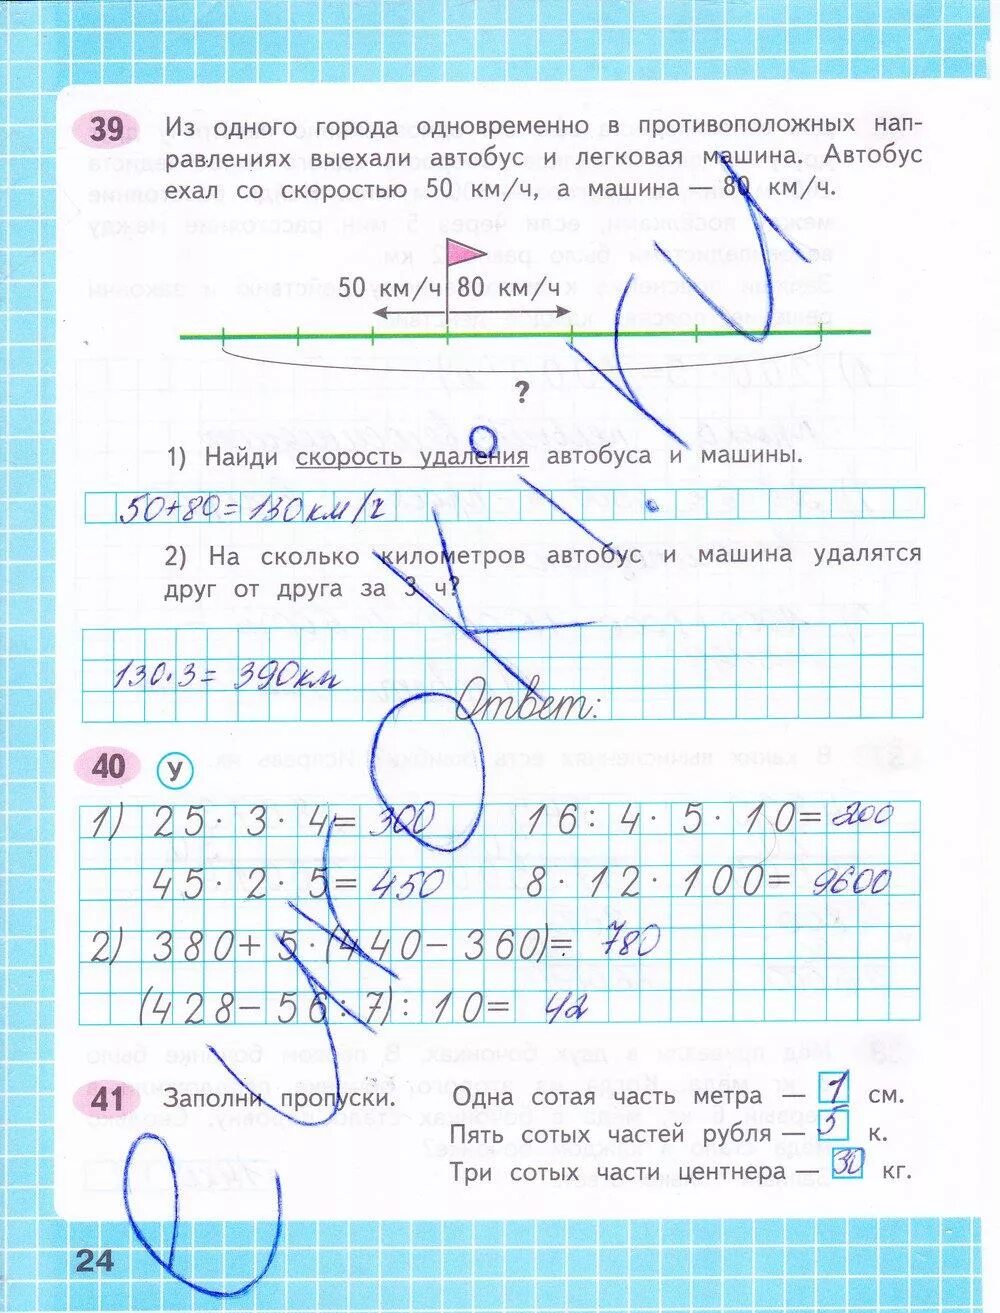 39 Из одного города одновременно в противоположных нап-
равлениях выехали автобус и легковая машина. Автобус
ехал со скоростью 50 км/ч, а машина — 80 км/ч.
50 км/ч 80 км/ч
?
1) Найди скорость удаления автобуса и машины.
50+80=130км/ч
2) На сколько километров автобус и машина удалятся
друг от друга за 3 ч?
130·3= 390км
Ответ:
40 У
1) 25·3·4= 300 16:4·5·10= 200
45·2·5= 450 8·12·100= 9600
2) 380+5·(440-360)= 780
(428-56:7):10= 42
41 Заполни пропуски. Одна сотая часть метра — 1 см.
Пять сотых частей рубля — 5 к.
Три сотых части центнера — 30 кг.
24